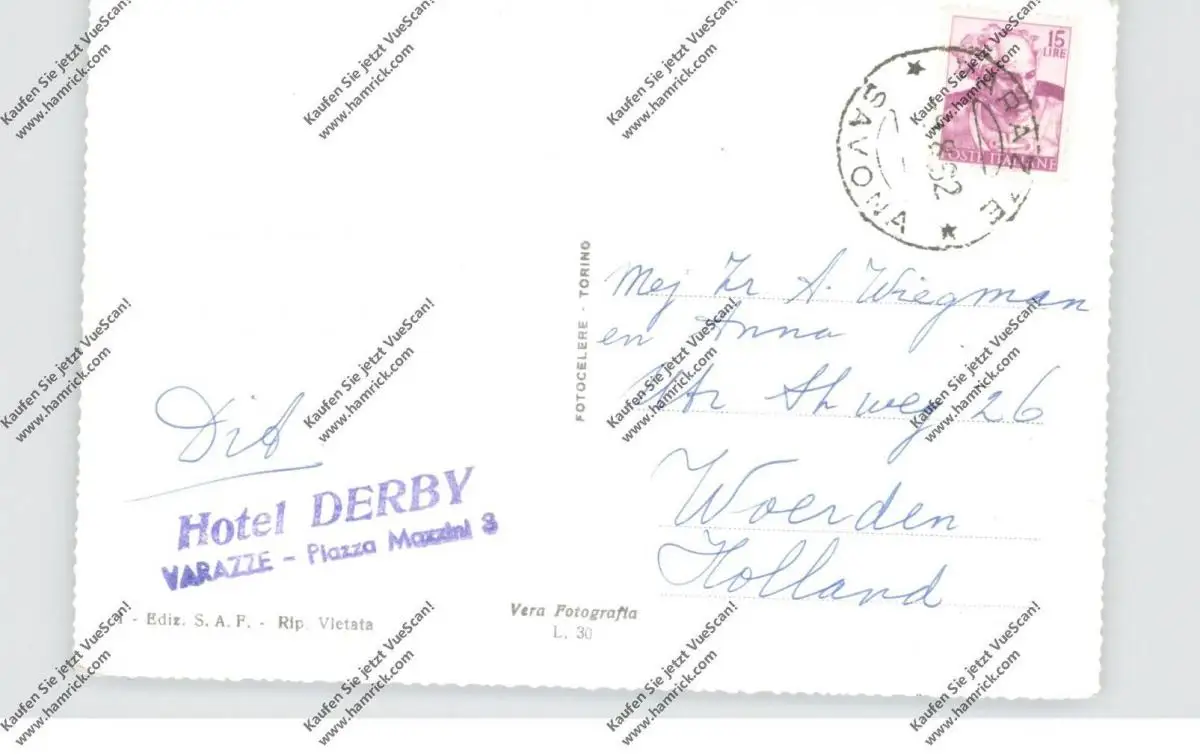 15
LIRE
POSTE ITALIANE
VARAZZE
SAVONA
62
FOTOCELERE - TORINO
A. Wiegman
en Anna
weg 26
Woerden
Holland
Hotel DERBY
VARAZZE - Piazza Mazzini 3
- Ediz. S. A. F. - Rip. Vietata
Vera Fotografia
L. 30
Kaufen Sie jetzt VueScan!
www.hamrick.com